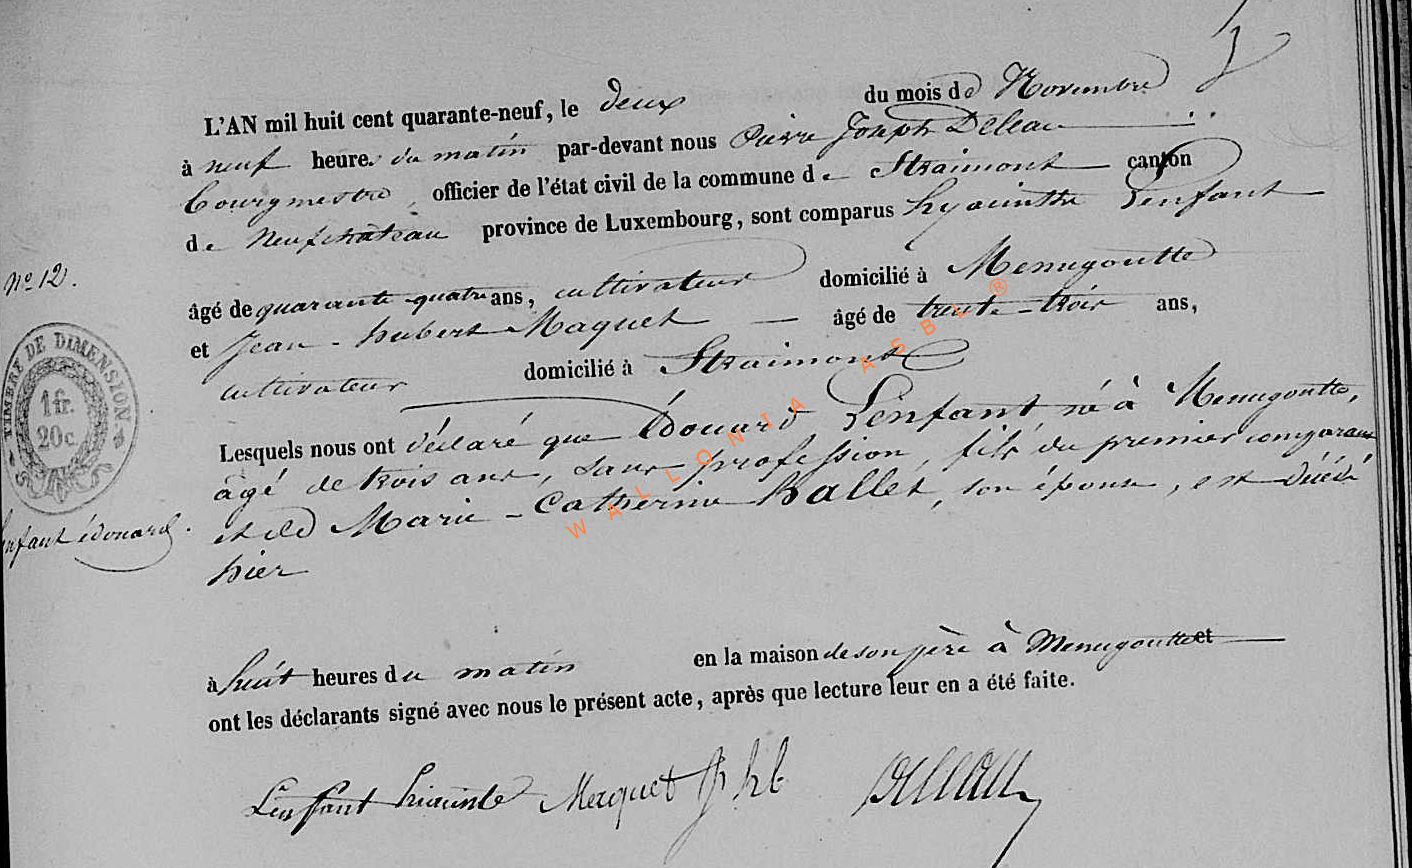 L'AN mil huit cent quarante-neuf, le deux du mois de Novembre
à neuf heures du matin par-devant nous Pierre Joseph Deleau
Bourgmestre, officier de l'état civil de la commune de Straimont canton
de Neufchateau province de Luxembourg, sont comparus hyacinthe Lenfant
No 12.
âgé de quarante-quatre ans, cultivateur domicilié à Menugoutte
et Jean-hubert Maquet — âgé de trente-trois ans,
cultivateur domicilié à Straimont
TIMBRE DE DIMENSION
1 fr.
20 c.
Lesquels nous ont déclaré que Édouard Lenfant, né à Menugoutte,
âgé de trois ans, sans profession, fils du premier comparant
et de Marie-Catherine Hallet, son épouse, est décédé
hier
enfant édouard.
à huit heures du matin en la maison de son père à Menugoutte et
ont les déclarants signé avec nous le présent acte, après que lecture leur en a été faite.
Lenfant hiacinte Maquet J hb Deleau
WALLONIA ASBL ®